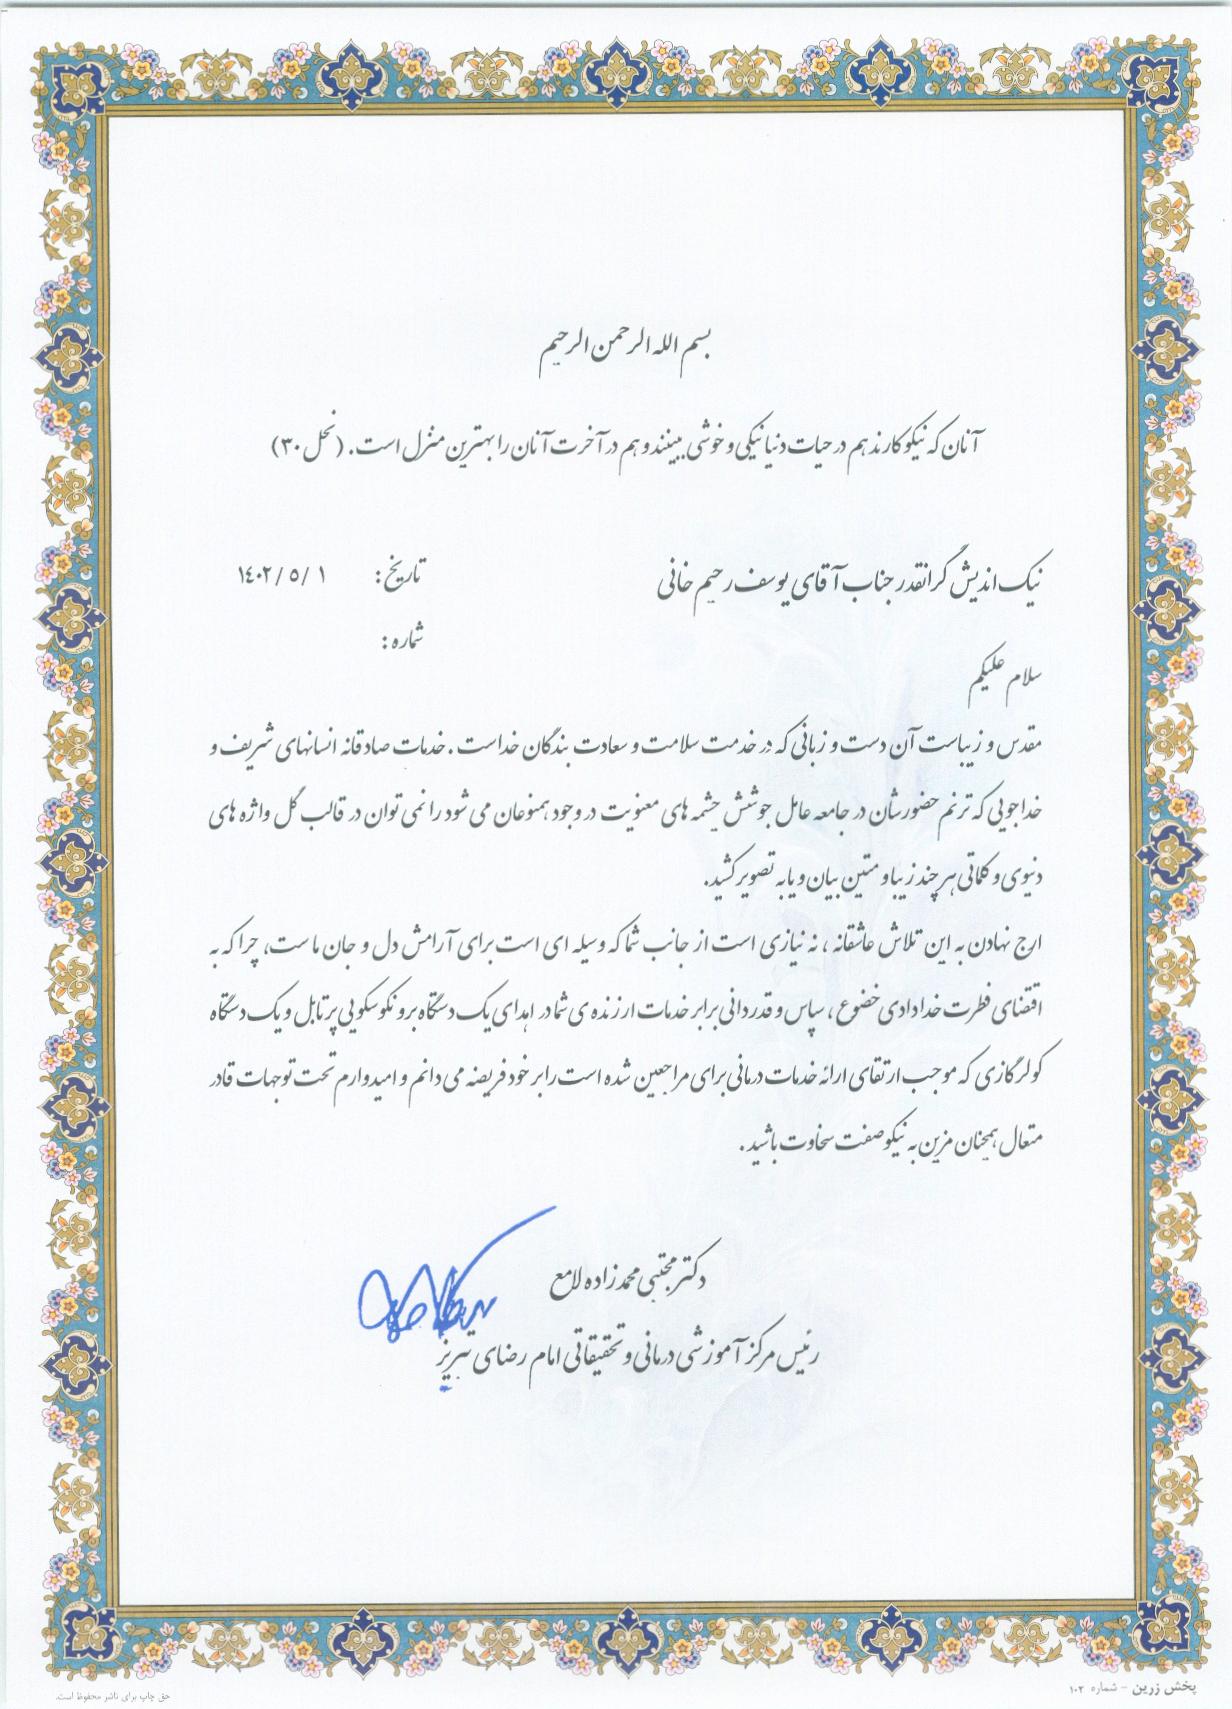 بسم الله الرحمن الرحیم
آنان که نیکوکارند هم در حیات دنیا نیکی و خوشی بینند و هم در آخرت آنان را بهترین منزل است. (نحل ۳۰)
نیک اندیش گرانقدر جناب آقای یوسف رحیم خانی
تاریخ: ۱۴۰۲/۵/۱
شماره:
سلام علیکم
مقدس و زیباست آن دست و زبانی که در خدمت سلامت و سعادت بندگان خداست. خدمات صادقانه انسانهای شریف و
خداجویی که ترنم حضورشان در جامعه عامل جوشش چشمه های معنویت در وجود همنوعان می شود را نمی توان در قالب گل واژه های
دنیوی و کلماتی هر چند زیبا و متین بیان و یا به تصویر کشید.
ارج نهادن به این تلاش عاشقانه، نه نیازی است از جانب شما که وسیله ای است برای آرامش دل و جان ماست، چرا که به
اقتضای فطرت خدادادی خضوع، سپاس و قدردانی برابر خدمات ارزنده ی شما در اهدای یک دستگاه برونکوسکوپی پرتابل و یک دستگاه
کولرگازی که موجب ارتقای ارائه خدمات درمانی برای مراجعین شده است را بر خود فریضه می دانم و امیدوارم تحت توجهات قادر
متعال همچنان مزین به نیکو صفت سخاوت باشید.
دکتر مجتبی محمدزاده لامع
رئیس مرکز آموزشی درمانی و تحقیقاتی امام رضای تبریز
پخش زرین - شماره ۱۰۲
حق چاپ برای ناشر محفوظ است.